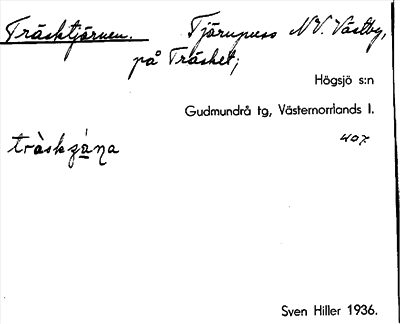 Träsktjärnen. Tjärnpuss NV. Västby,
på Träsket;
Högsjö s:n
Gudmundrå tg, Västernorrlands l.
407
Sven Hiller 1936.